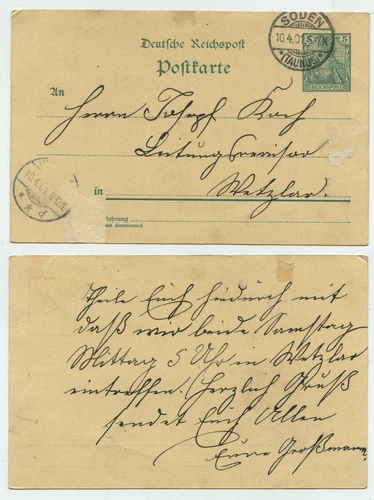 Deutsche Reichspost
Postkarte
SODEN
10.4.01. 5-
* (TAUNUS) *
5
REICHSPOST
An
Herrn Joseph Koch
Leitungsrevisor
in Wetzlar.
Wohnung
Theile Euch hiedurch mit
daß wir beide Samstag
Mittag 5 Uhr in Wetzlar
eintreffen. Herzlich Gruß
sendet Euch Allen
Eure Großmama.